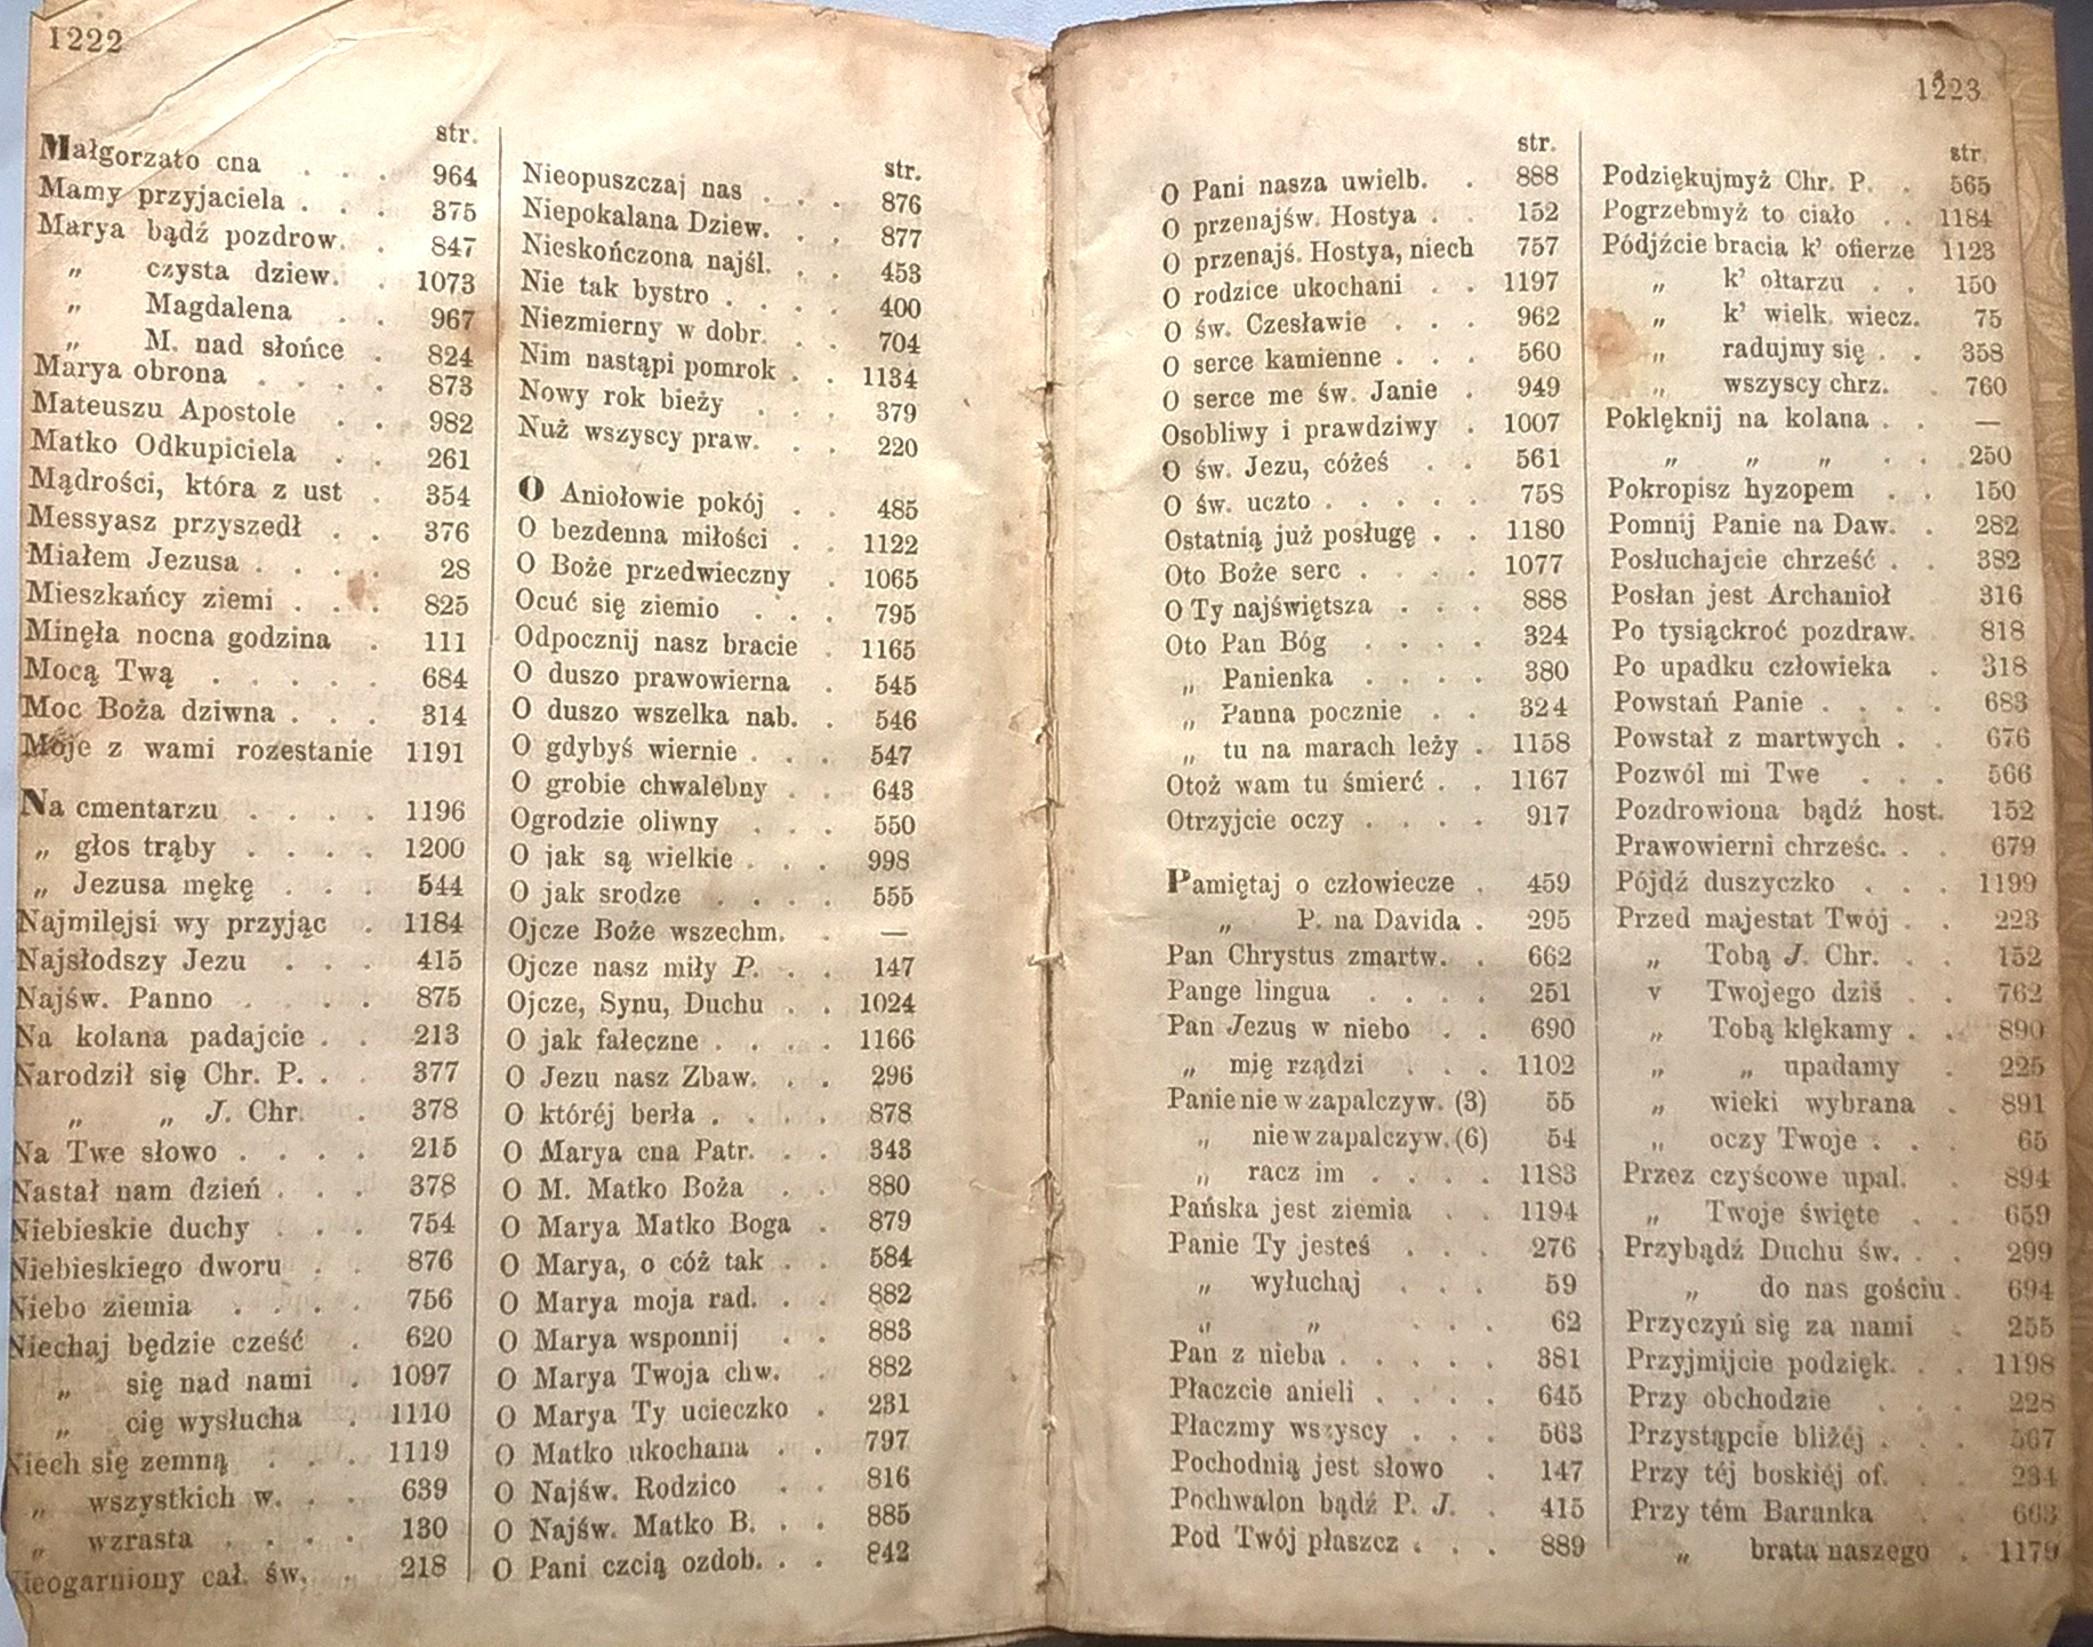 1222
str.
Małgorzato cna . . . 964
Mamy przyjaciela . . . 375
Marya bądź pozdrow. . 847
„ czysta dziew. . 1073
„ Magdalena . . 967
„ M. nad słońce . 824
Marya obrona . . . . 873
Mateuszu Apostole . . 982
Matko Odkupiciela . . 261
Mądrości, która z ust . 354
Messyasz przyszedł . . 376
Miałem Jezusa . . . . 28
Mieszkańcy ziemi . . . 825
Minęła nocna godzina . 111
Mocą Twą . . . . . 684
Moc Boża dziwna . . . 314
Moje z wami rozestanie 1191
Na cmentarzu . . . . 1196
„ głos trąby . . . . 1200
„ Jezusa mękę . . . 544
Najmilejsi wy przyjąc . 1184
Najsłodszy Jezu . . . 415
Najśw. Panno . . . . 875
Na kolana padajcie . . 213
Narodził się Chr. P. . . 377
„ „ J. Chr. . 378
Na Twe słowo . . . . 215
Nastał nam dzień . . . 378
Niebieskie duchy . . . 754
Niebieskiego dworu . . 876
Niebo ziemia . . . . 756
Niechaj będzie cześć . 620
„ się nad nami . 1097
„ cię wysłucha . 1110
Niech się zemną . . . 1119
„ wszystkich w. . . 639
„ wzrasta . . . . 130
Nieogarniony cał. św. . 218
str.
Nieopuszczaj nas . . . 876
Niepokalana Dziew. . . 877
Nieskończona najśl. . . 453
Nie tak bystro . . . . 400
Niezmierny w dobr. . . 704
Nim nastąpi pomrok . . 1134
Nowy rok bieży . . . 379
Nuż wszyscy praw. . . 220
O Aniołowie pokój . . 485
O bezdenna miłości . . 1122
O Boże przedwieczny . 1065
Ocuć się ziemio . . . 795
Odpocznij nasz bracie . 1165
O duszo prawowierna . 545
O duszo wszelka nab. . 546
O gdybyś wiernie . . . 547
O grobie chwalebny . . 643
Ogrodzie oliwny . . . 550
O jak są wielkie . . . 998
O jak srodze . . . . 555
Ojcze Boże wszechm. . —
Ojcze nasz miły P. . . 147
Ojcze, Synu, Duchu . . 1024
O jak fałeczne . . . . 1166
O Jezu nasz Zbaw. . . 296
O któréj berła . . . . 878
O Marya cna Patr. . . 343
O M. Matko Boża . . 880
O Marya Matko Boga . 879
O Marya, o cóż tak . . 584
O Marya moja rad. . . 882
O Marya wsponnij . . 883
O Marya Twoja chw. . 882
O Marya Ty ucieczko . 231
O Matko ukochana . . 797
O Najśw. Rodzico . . 816
O Najśw. Matko B. . . 885
O Pani czcią ozdob. . . 842
1223
str.
O Pani nasza uwielb. . 888
O przenajśw. Hostya . 152
O przenajś. Hostya, niech 757
O rodzice ukochani . . 1197
O św. Czesławie . . . 962
O serce kamienne . . . 560
O serce me św. Janie . 949
Osobliwy i prawdziwy . 1007
O św. Jezu, cóżeś . . 561
O św. uczto . . . . . 758
Ostatnią już posługę . . 1180
Oto Boże serc . . . . 1077
O Ty najświętsza . . . 888
Oto Pan Bóg . . . . 324
„ Panienka . . . . 380
„ Panna pocznie . . 324
„ tu na marach leży . 1158
Otoż wam tu śmierć . . 1167
Otrzyjcie oczy . . . . 917
Pamiętaj o człowiecze . 459
„ P. na Davida . 295
Pan Chrystus zmartw. . 662
Pange lingua . . . . 251
Pan Jezus w niebo . . 690
„ mię rządzi . . . 1102
Panie nie w zapalczyw. (3) 55
„ nie w zapalczyw. (6) 54
„ racz im . . . . 1183
Pańska jest ziemia . . 1194
Panie Ty jesteś . . . 276
„ wyłuchaj . . . 59
„ „ . . . 62
Pan z nieba . . . . . 381
Płaczcie anieli . . . . 645
Płaczmy wszyscy . . . 563
Pochodnią jest słowo . 147
Pochwalon bądź P. J. . 415
Pod Twój płaszcz . . . 889
str.
Podziękujmyż Chr. P. . 565
Pogrzebmyż to ciało . . 1184
Pódjźcie bracia k' ofierze 1123
„ k' ołtarzu . . 150
„ k' wielk. wiecz. 75
„ radujmy się . . 358
„ wszyscy chrz. . 760
Poklęknij na kolana . . —
„ „ „ . . 250
Pokropisz hyzopem . . 150
Pomnij Panie na Daw. . 282
Posłuchajcie chrześć . . 382
Posłan jest Archanioł 316
Po tysiąckroć pozdraw. 818
Po upadku człowieka . 318
Powstań Panie . . . . 683
Powstał z martwych . . 676
Pozwól mi Twe . . . 566
Pozdrowiona bądź host. 152
Prawowierni chrześc. . . 679
Pójdź duszyczko . . . 1199
Przed majestat Twój . . 223
„ Tobą J. Chr. . . 152
v Twojego dziś . . 762
„ Tobą klękamy . . 890
„ „ upadamy . 225
„ wieki wybrana . 891
„ oczy Twoje . . . 65
Przez czyścowe upal. . 894
„ Twoje święte . . 659
Przybądź Duchu św. . . 299
„ do nas gościu . 694
Przyczyń się za nami . 255
Przyjmijcie podzięk. . . 1198
Przy obchodzie . . . 228
Przystąpcie bliżéj . . . 567
Przy téj boskiéj of. . . 234
Przy tém Baranka . . 663
„ brata naszego . 1179